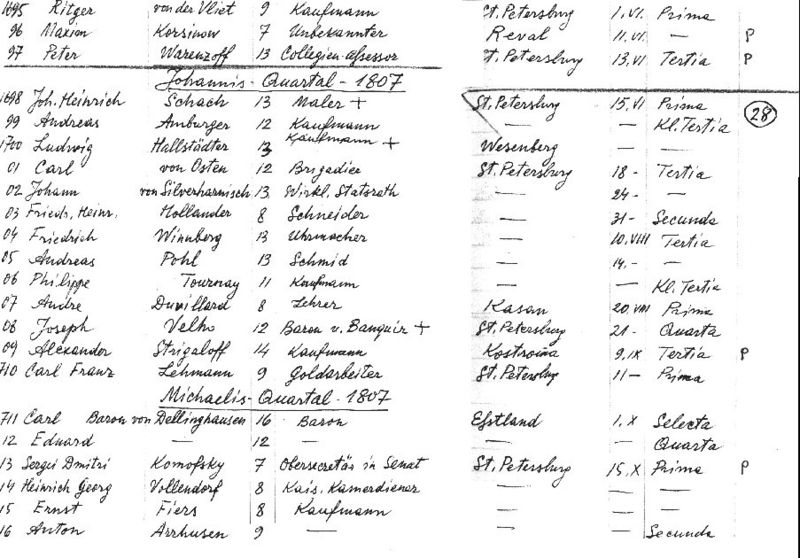 1695 Ritger von der Vliet 9 Kaufmann St. Petersburg 1. VI. Prima
96 Maxim Korsinow 7 Unbekannter Reval 11. VI. — P
97 Peter Warenzoff 13 Collegien-Assessor St. Petersburg 13. VI Tertia P
Johannis-Quartal-1807
1698 Joh. Heinrich Schach 13 Maler + St. Petersburg 15. VI Prima 28
99 Andreas Amburger 12 Kaufmann — — Kl. Tertia
1700 Ludwig Hallstädter 13 Kaufmann + Wesenberg — —
01 Carl von Osten 12 Brigadier St. Petersburg 18 - Tertia
02 Johann von Silverharnisch 13 Wirkl. Statsrath — 24 - —
03 Friedr. Heinr. Hollander 8 Schneider — 31 - Secunda
04 Friedrich Winnberg 13 Uhrmacher — 10. VIII Tertia
05 Andreas Pohl 13 Schmid — 14. - —
06 Philippe Tournay 11 Kaufmann — — Kl. Tertia
07 Andre Duvillard 8 Lehrer Kasan 20. VIII Prima
08 Joseph Velho 12 Baron v. Banquir + St. Petersburg 21 - Quarta
09 Alexander Strigaloff 14 Kaufmann Kostroma 9. IX Tertia P
710 Carl Franz Lehmann 9 Goldarbeiter St. Petersburg 11 — Prima
Michaelis-Quartal-1807
711 Carl Baron von Dellinghausen 16 Baron Efstland 1. X Selecta
12 Eduard — 12 — — Quarta
13 Sergei Dmitri Komofsky 7 Obersecretär in Senat St. Petersburg 15. X Prima P
14 Heinrich Georg Vollendorf 8 Kais. Kamerdiener — — —
15 Ernst Fiers 8 Kaufmann — — —
16 Anton Arrhusen 9 — — — Secunda